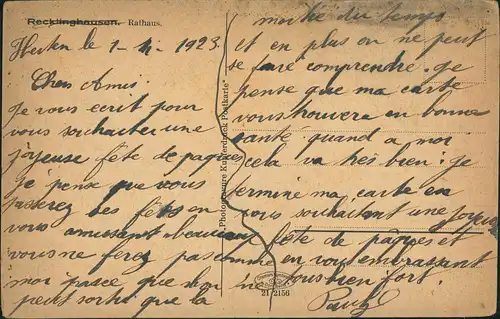 Recklinghausen. Rathaus.
Herten le 1-4-1923.
Chers Amis
Je vous écrit pour
vous souhaiter une
joyeuse fête de paques
je pense que vous
passerez ses fêtes en
vous amusent beaucoup
vous ne ferez pas comme
moi parce que
peut sortir que la
moitié du temps
et en plus on ne peut
se faire comprendre. Je
pense que ma carte
vous trouvera en bonne
santé quand a moi
cela va très bien. Je
termine ma carte en
vous souhaitant une joyeuse
fête de pâques et
en vous embrassant
tous bien fort.
Photogravure Kupferdruck Postkarte
21/2156